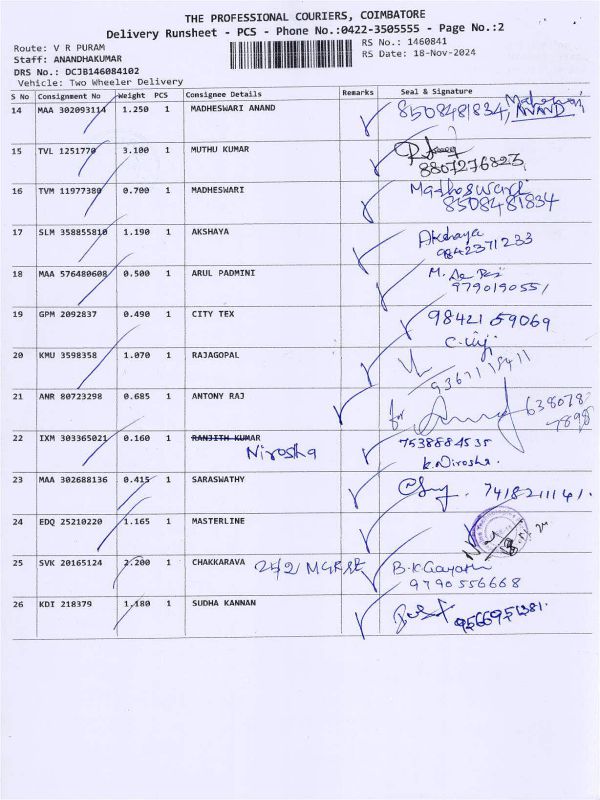 THE PROFESSIONAL COURIERS, COIMBATORE
Delivery Runsheet - PCS - Phone No.:0422-3505555 - Page No.:2
Route: V R PURAM
RS No.: 1460841
Staff: ANANDHAKUMAR
RS Date: 18-Nov-2024
DRS No.: DCJB146084102
Vehicle: Two Wheeler Delivery
S No Consignment No Weight PCS Consignee Details Remarks Seal & Signature
14 MAA 302093114 1.250 1 MADHESWARI ANAND 8508481834, ANAND
15 TVL 1251770 3.100 1 MUTHU KUMAR 8807276823
16 TVM 11977380 0.700 1 MADHESWARI Matheswari
8508481834
17 SLM 358855810 1.190 1 AKSHAYA Akshaya
9842371233
18 MAA 576480608 0.500 1 ARUL PADMINI
9790190551
19 GPM 2092837 0.490 1 CITY TEX 98421 59069
20 KMU 3598358 1.070 1 RAJAGOPAL
21 ANR 80723298 0.685 1 ANTONY RAJ for 638078
7898
22 IXM 303365021 0.160 1 RANJITH KUMAR Nirosha 7538884535
K.Nirosha.
23 MAA 302688136 0.415 1 SARASWATHY 7418211141.
24 EDQ 25210220 1.165 1 MASTERLINE
25 SVK 20165124 2.200 1 CHAKKARAVA 25/2 MGR St B.K Gayathri
9790556668
26 KDI 218379 1.180 1 SUDHA KANNAN 9566951381.